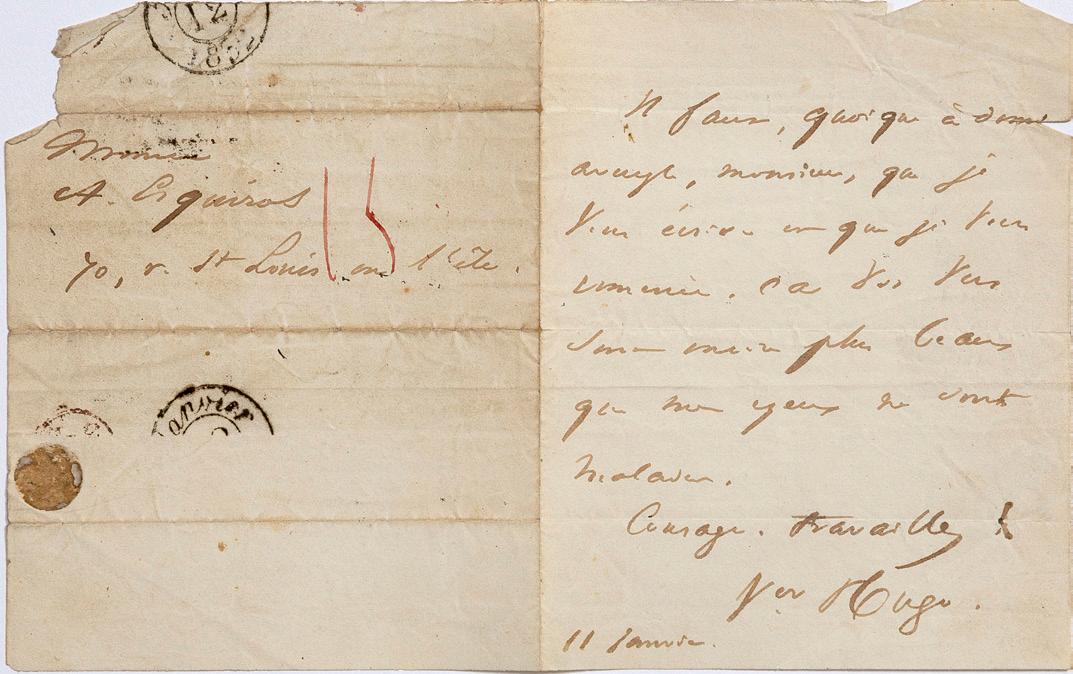 12
183
Monsieur
A. Esquiros
70, r. St Louis en l'île.
15
Janvier
Il faut, quoique à demi
aveugle, monsieur, que je
vous écrive et que je vous
remercie. Car vos vers
sont encore plus beaux
que mes yeux ne sont
malades.
Courage. Travaillez !
Vor Hugo.
11 janvier.